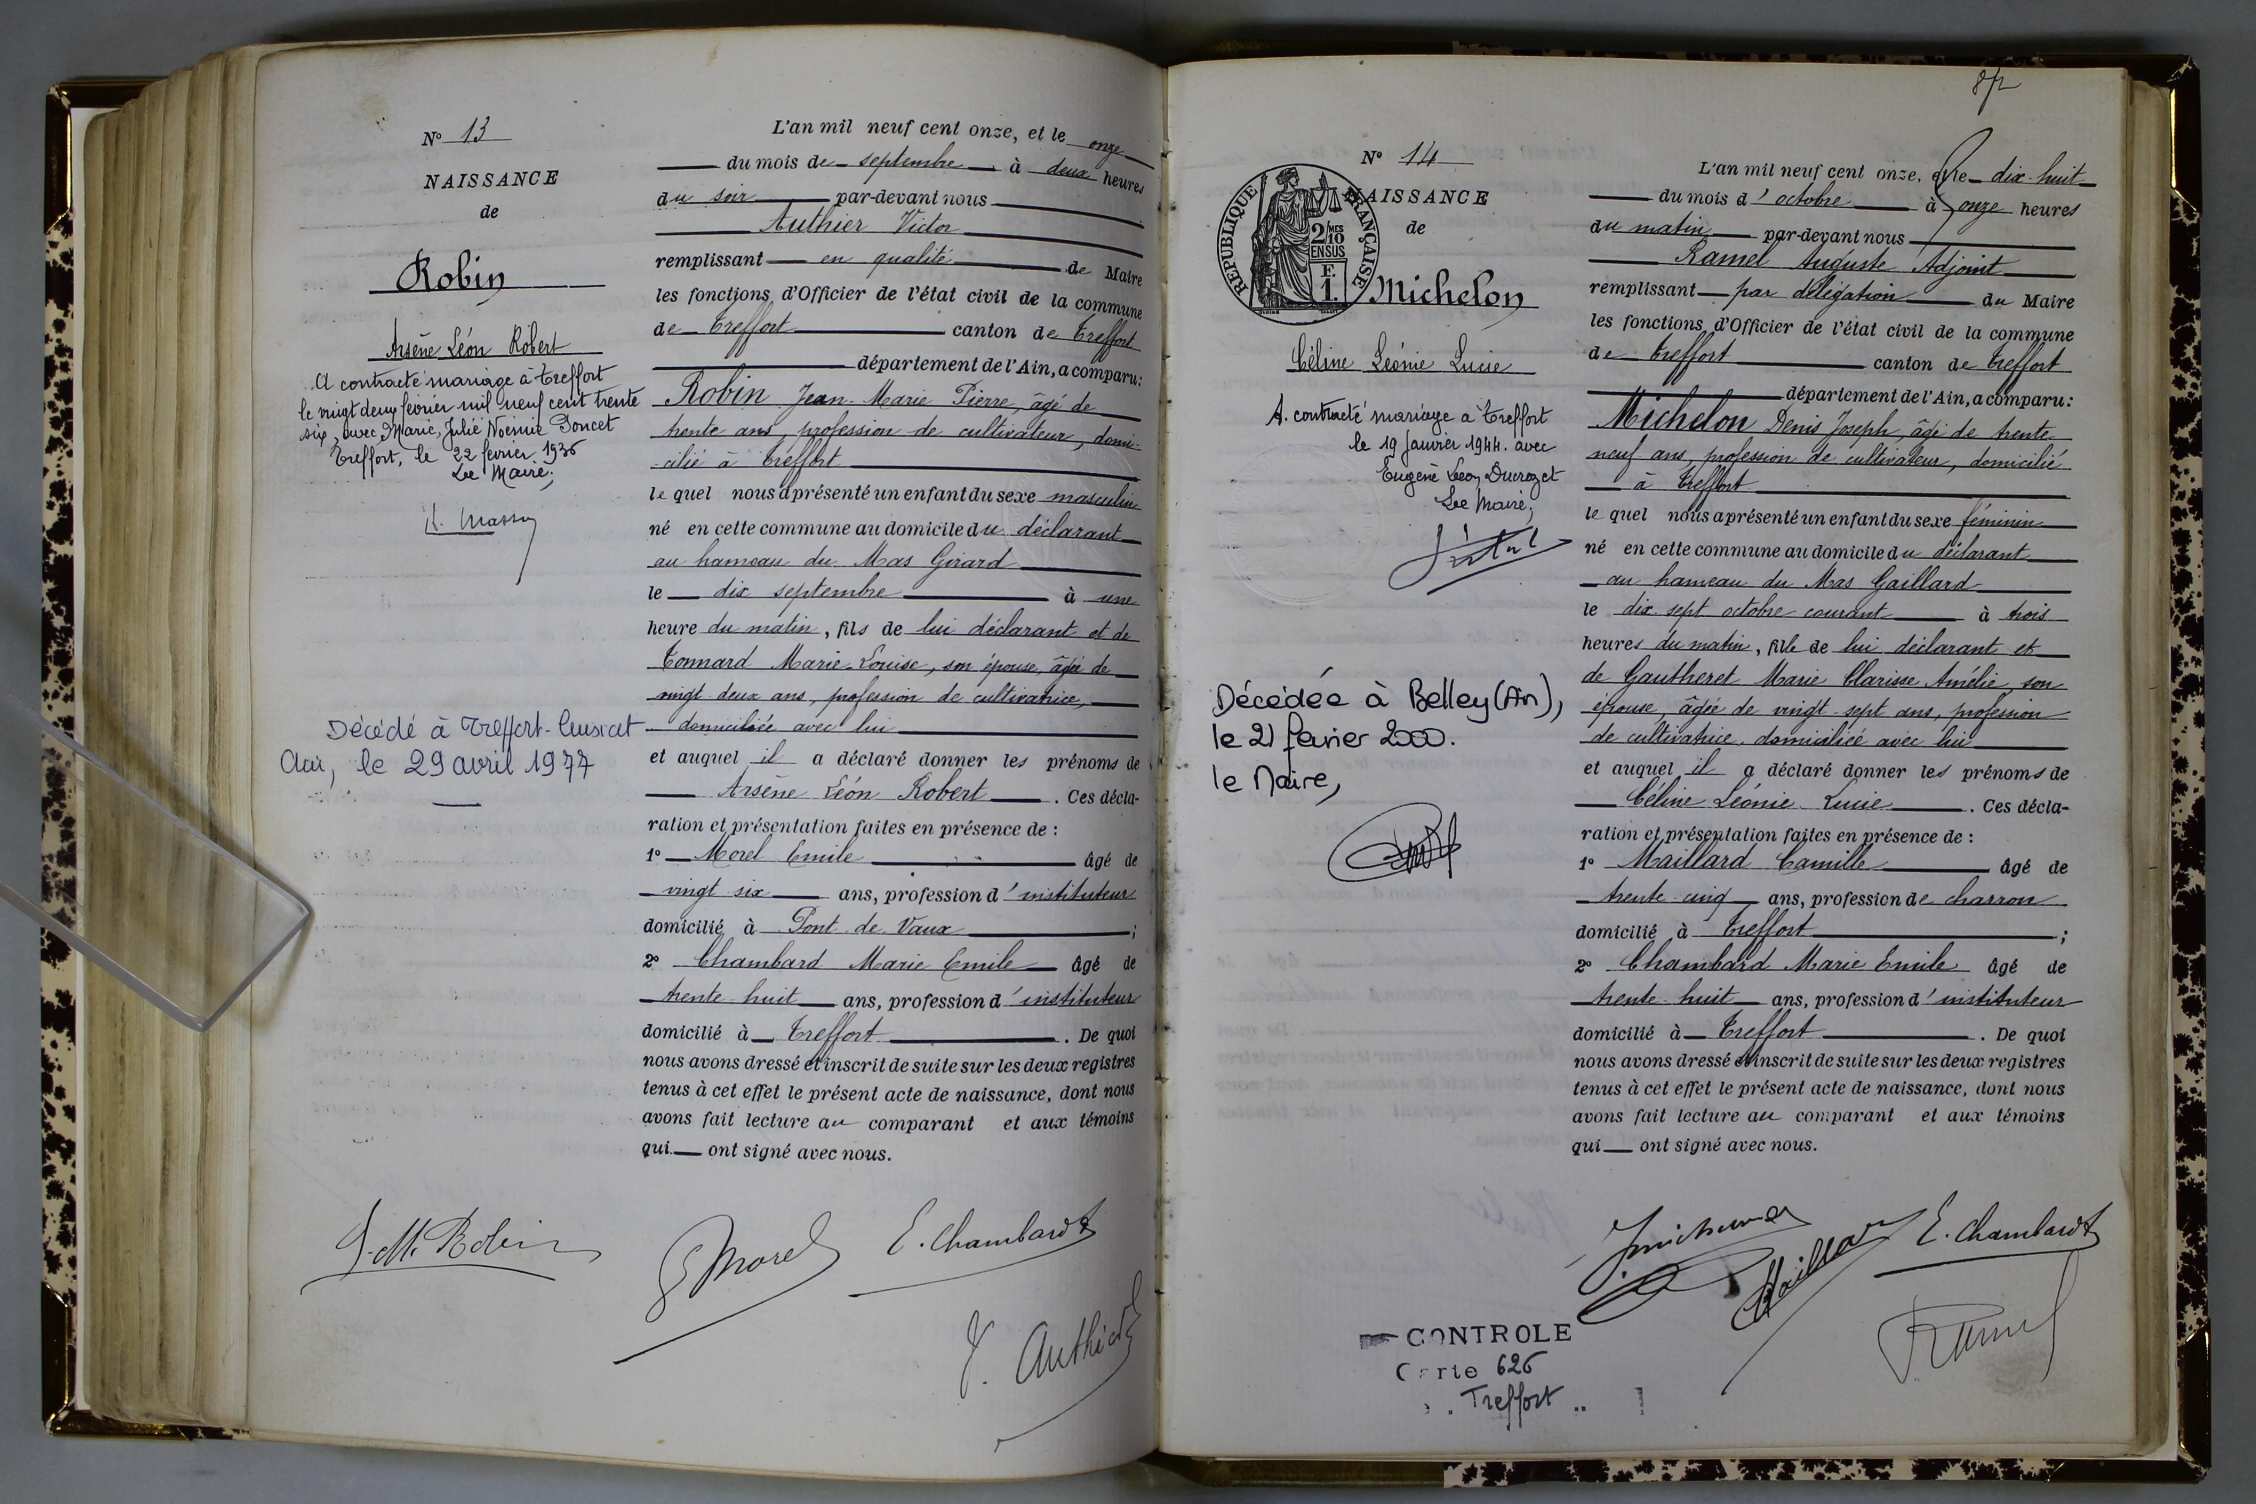 N° 13
NAISSANCE
de
Robin
Arsène Léon Robert
A contracté mariage à Treffort
le vingt deux février mil neuf cent trente
six, avec Marie, Julie Noémie Poncet
Treffort, le 22 février 1936
Le Maire;
Décédé à Treffort-Cuisiat
Ain, le 29 avril 1977
L'an mil neuf cent onze, et le onze
du mois de septembre à deux heures
du soir par-devant nous
Authier Victor
remplissant en qualité de Maire
les fonctions d'Officier de l'état civil de la commune
de Treffort canton de Treffort
département de l'Ain, a comparu:
Robin Jean Marie Pierre, âgé de
trente ans, profession de cultivateur, domi-
cilié à Treffort
le quel nous a présenté un enfant du sexe masculin
né en cette commune au domicile du déclarant
au hameau du Mas Girard
le dix septembre à une
heure du matin, fils de lui déclarant et de
Tonnard Marie-Louise, son épouse, âgée de
vingt deux ans, profession de cultivatrice,
domiciliée avec lui
et auquel il a déclaré donner les prénoms de
Arsène Léon Robert. Ces décla-
ration et présentation faites en présence de :
1° Morel Emile âgé de
vingt six ans, profession d'instituteur
domicilié à Pont de Vaux ;
2° Chambard Marie Emile âgé de
trente-huit ans, profession d'instituteur
domicilié à Treffort. De quoi
nous avons dressé et inscrit de suite sur les deux registres
tenus à cet effet le présent acte de naissance, dont nous
avons fait lecture au comparant et aux témoins
qui ont signé avec nous.
J. M. Robin
E Morel
E. Chambard
V. Authier
N° 14
NAISSANCE
de
REPUBLIQUE FRANÇAISE
2/10 MES
EN SUS
F.
1.
Michelon
Céline Léonie Lucie
A. contracté mariage à Treffort
le 19 Janvier 1944. avec
Eugène Léon Ducrozet
Le Maire;
Décédée à Belley (Ain),
le 21 février 2000.
le Maire,
L'an mil neuf cent onze, et le dix-huit
du mois d'octobre à onze heures
du matin par-devant nous
Ramel Auguste Adjoint
remplissant par délégation du Maire
les fonctions d'Officier de l'état civil de la commune
de Treffort canton de Treffort
département de l'Ain, a comparu:
Michelon Denis Joseph, âgé de trente-
neuf ans, profession de cultivateur, domicilié
à Treffort
le quel nous a présenté un enfant du sexe féminin
né en cette commune au domicile du déclarant
au hameau du Mas Gaillard
le dix sept octobre courant à trois
heures du matin, fille de lui déclarant et
de Gautheret Marie Clarisse Amélie son
épouse, âgée de vingt sept ans, profession
de cultivatrice domiciliée avec lui
et auquel il a déclaré donner les prénoms de
Céline Léonie Lucie. Ces décla-
ration et présentation faites en présence de :
1° Maillard Camille âgé de
trente cinq ans, profession de charron
domicilié à Treffort ;
2° Chambard Marie Emile âgé de
trente huit ans, profession d'instituteur
domicilié à Treffort. De quoi
nous avons dressé et inscrit de suite sur les deux registres
tenus à cet effet le présent acte de naissance, dont nous
avons fait lecture au comparant et aux témoins
qui ont signé avec nous.
Maillard
E. Chambard
Ramel
CONTROLE
Carte 626
Treffort